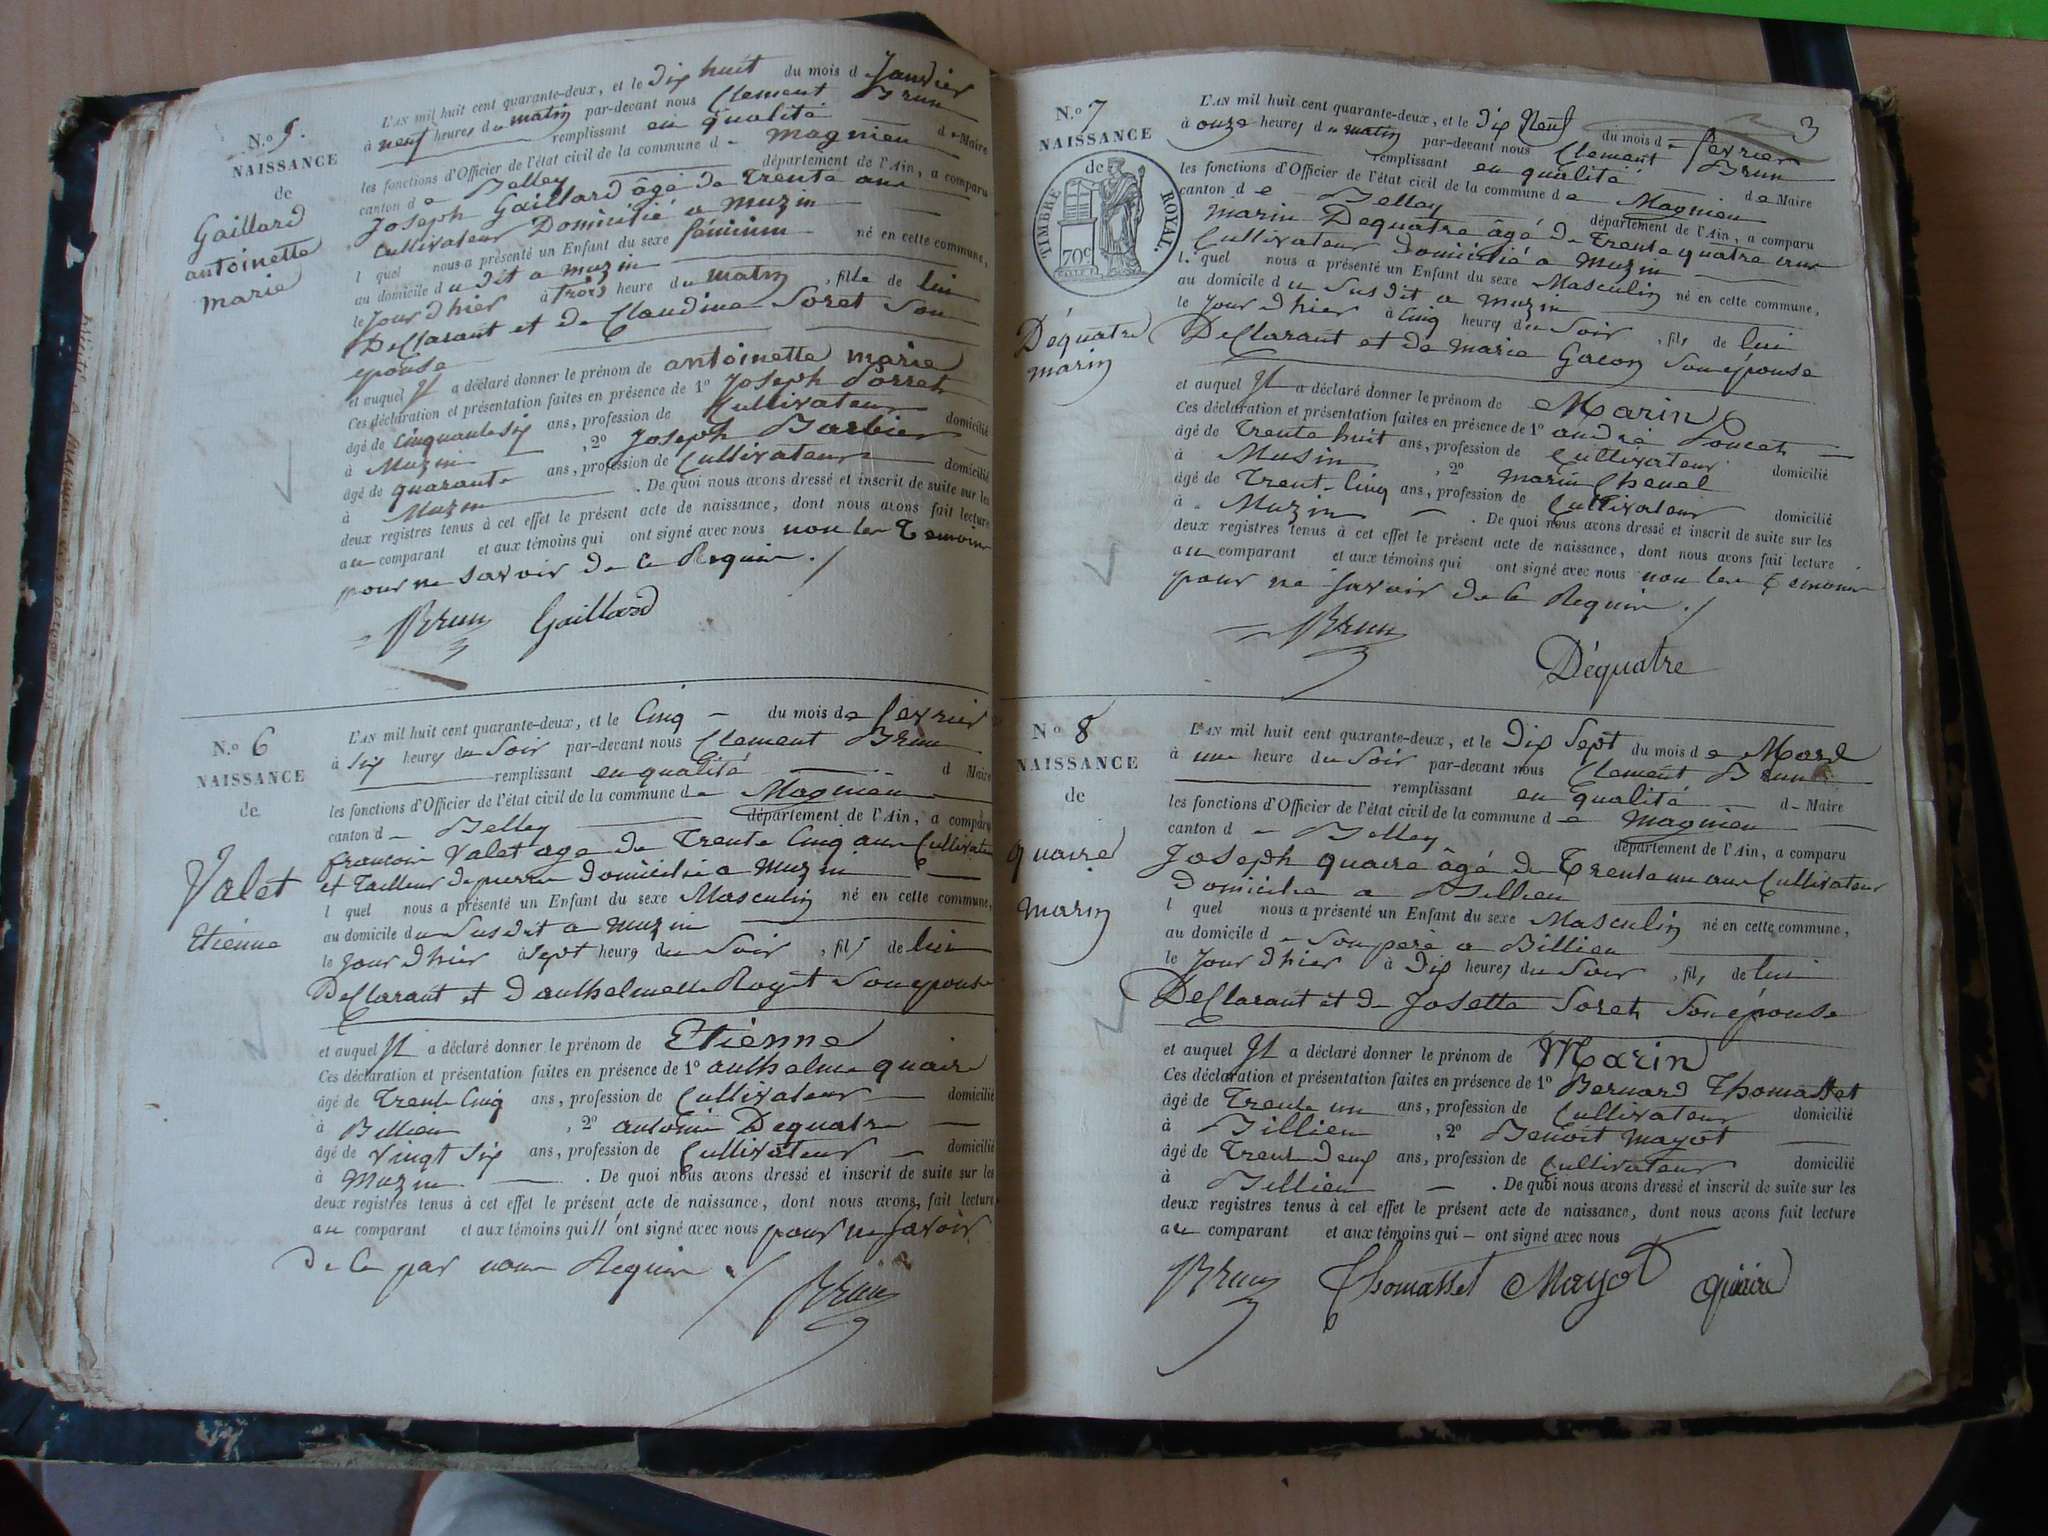 N.o 5.
NAISSANCE
de
Gaillard
antoinette
marie
L'AN mil huit cent quarante-deux, et le Dix huit du mois d Janvier
à neuf heures du matin par-devant nous Clement Brun
remplissant en qualité de Maire
les fonctions d'Officier de l'état civil de la commune de Magnieu
canton de Belley département de l'Ain, a comparu
Joseph Gaillard âgé de Trente ans
Cultivateur Domicilié a Muzin
l quel nous a présenté un Enfant du sexe féminin né en cette commune,
au domicile du dit a Muzin
le Jour d'hier à trois heure du matin, fille de lui
Declarant et de Claudine Soret Son
epouse
et auquel Il a déclaré donner le prénom de antoinette marie
Ces déclaration et présentation faites en présence de 1o Joseph Sorret
âgé de Cinquante six ans, profession de Cultivateur domicilié
à Muzin, 2o Joseph Barbier
âgé de quarante ans, profession de Cultivateur domicilié
à Muzin. De quoi nous avons dressé et inscrit de suite sur les
deux registres tenus à cet effet le présent acte de naissance, dont nous avons fait lecture
au comparant et aux témoins qui ont signé avec nous non les Temoins
pour ne savoir de ce Requis ./
Brun Gaillard
N.o 6
NAISSANCE
de
Valet
Etienne
L'AN mil huit cent quarante-deux, et le Cinq du mois de fevrier
à Six heures du Soir par-devant nous Clement Brun
remplissant en qualité d Maire
les fonctions d'Officier de l'état civil de la commune de Magnieu
canton de Belley département de l'Ain, a comparu
francois Valet age de Trente Cinq ans Cultivateur
et Tailleur de pierre domicilié a Muzin
l quel nous a présenté un Enfant du sexe Masculin né en cette commune,
au domicile du Susdit a Muzin
le Jour d'hier à Sept heures du Soir, fils de lui
Declarant et d'anthelmette Royet Son epouse
et auquel Il a déclaré donner le prénom de Etienne
Ces déclaration et présentation faites en présence de 1o anthelme quaire
âgé de Trente Cinq ans, profession de Cultivateur domicilié
à Billieu, 2o antoine Dequatre
âgé de Vingt Six ans, profession de Cultivateur domicilié
à Muzin. De quoi nous avons dressé et inscrit de suite sur les
deux registres tenus à cet effet le présent acte de naissance, dont nous avons fait lecture
au comparant et aux témoins qui // ont signé avec nous pour ne savoir
de ce par nous Requis ./
Brun
3
N.o 7
NAISSANCE
de
TIMBRE ROYAL.
70c
Déquatre
marin
L'AN mil huit cent quarante-deux, et le Dix Neuf du mois de fevrier
à onze heures du matin par-devant nous Clement Brun
remplissant en qualité de Maire
les fonctions d'Officier de l'état civil de la commune de Magnieu
canton de Belley département de l'Ain, a comparu
Marin Dequatre âgé de Trente quatre ans
Cultivateur domicilié a Muzin
l. quel nous a présenté un Enfant du sexe Masculin né en cette commune,
au domicile du Susdit a Muzin
le Jour d'hier à Cinq heures du Soir, fils de lui
Declarant et de marie Gacon Son épouse
et auquel Il a déclaré donner le prénom de Marin
Ces déclaration et présentation faites en présence de 1o andré Poncet
âgé de Trente huit ans, profession de Cultivateur domicilié
à Musin, 2o marin Chenel
âgé de Trent Cinq ans, profession de Cultivateur domicilié
à Muzin. De quoi nous avons dressé et inscrit de suite sur les
deux registres tenus à cet effet le présent acte de naissance, dont nous avons fait lecture
au comparant et aux témoins qui ont signé avec nous non les Temoins
pour ne savoir de ce Requis ./
Brun
Déquatre
No 8
NAISSANCE
de
quaire
marin
L'AN mil huit cent quarante-deux, et le Dix Sept du mois de Mars
à une heure du Soir par-devant nous Clement Brun
remplissant en qualité d Maire
les fonctions d'Officier de l'état civil de la commune de Magnieu
canton d Belley département de l'Ain, a comparu
Joseph quaire âgé de Trente un ans Cultivateur
Domicilie a Billieu
l quel nous a présenté un Enfant du sexe Masculin né en cette commune,
au domicile de Son pere a Billieu
le Jour d'hier à Dix heures du Soir, fils de lui
Declarant et de Josette Soret Son épouse
et auquel Il a déclaré donner le prénom de Marin
Ces déclaration et présentation faites en présence de 1o Bernard Thomasset
âgé de Trente un ans, profession de Cultivateur domicilié
à Billieu, 2o Benoit Mayot
âgé de Trente deux ans, profession de Cultivateur domicilié
à Billieu. De quoi nous avons dressé et inscrit de suite sur les
deux registres tenus à cet effet le présent acte de naissance, dont nous avons fait lecture
au comparant et aux témoins qui — ont signé avec nous
Brun Thomasset Mayot quaire